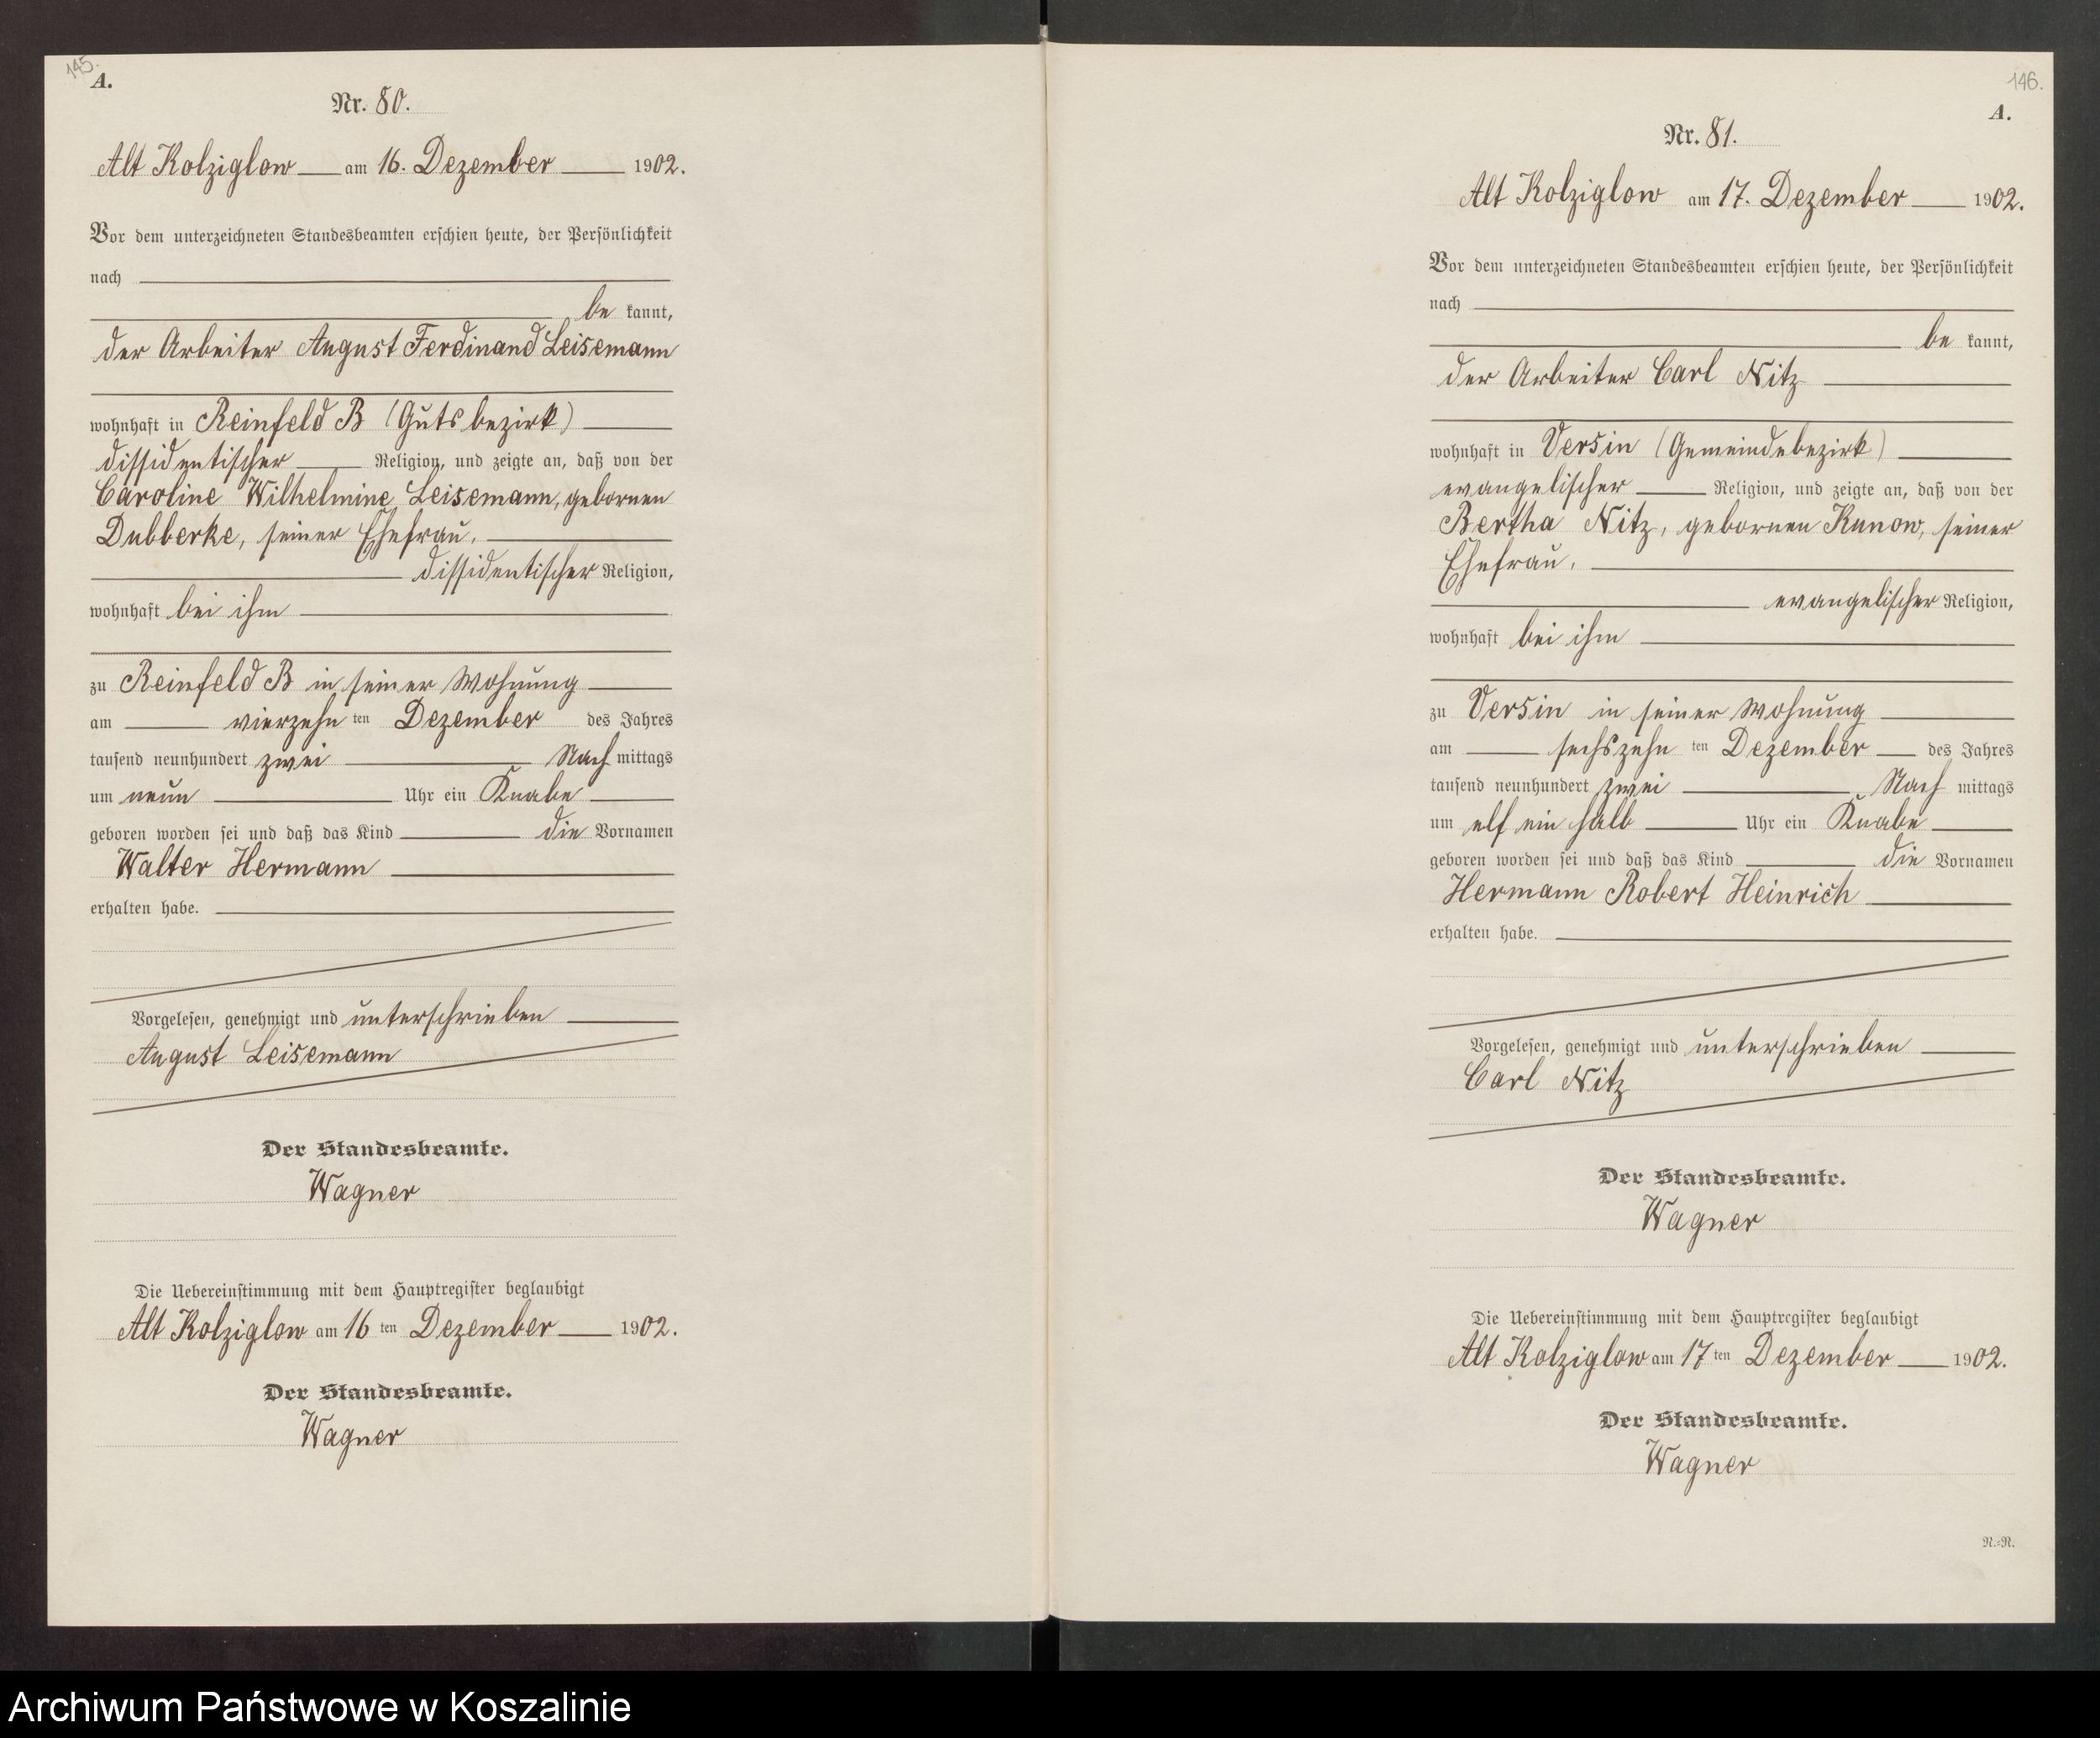 145.
A.
Nr. 80.
Alt Kolziglow am 16. Dezember 1902.
Vor dem unterzeichneten Standesbeamten erschien heute, der Persönlichkeit
nach
be kannt,
der Arbeiter August Ferdinand Leisemann
wohnhaft in Reinfeld B (Gutsbezirk)
dissidentischer Religion, und zeigte an, daß von der
Caroline Wilhelmine Leisemann, gebornen
Dubberke, seiner Ehefrau,
dissidentischer Religion,
wohnhaft bei ihm
zu Reinfeld B in seiner Wohnung
am vierzehn ten Dezember des Jahres
tausend neunhundert zwei Nach mittags
um neun Uhr ein Knabe
geboren worden sei und daß das Kind die Vornamen
Walter Hermann
erhalten habe.
Vorgelesen, genehmigt und unterschrieben
August Leisemann
Der Standesbeamte.
Wagner
Die Uebereinstimmung mit dem Hauptregister beglaubigt
Alt Kolziglow am 16 ten Dezember 1902.
Der Standesbeamte.
Wagner
146.
A.
Nr. 81.
Alt Kolziglow am 17. Dezember 1902.
Vor dem unterzeichneten Standesbeamten erschien heute, der Persönlichkeit
nach
be kannt,
der Arbeiter Carl Nitz
wohnhaft in Versin (Gemeindebezirk)
evangelischer Religion, und zeigte an, daß von der
Bertha Nitz, gebornen Kunow, seiner
Ehefrau,
evangelischer Religion,
wohnhaft bei ihm
zu Versin in seiner Wohnung
am sechszehn ten Dezember des Jahres
tausend neunhundert zwei Nach mittags
um elf ein halb Uhr ein Knabe
geboren worden sei und daß das Kind die Vornamen
Hermann Robert Heinrich
erhalten habe.
Vorgelesen, genehmigt und unterschrieben
Carl Nitz
Der Standesbeamte.
Wagner
Die Uebereinstimmung mit dem Hauptregister beglaubigt
Alt Kolziglow am 17 ten Dezember 1902.
Der Standesbeamte.
Wagner
N.-N.
Archiwum Państwowe w Koszalinie